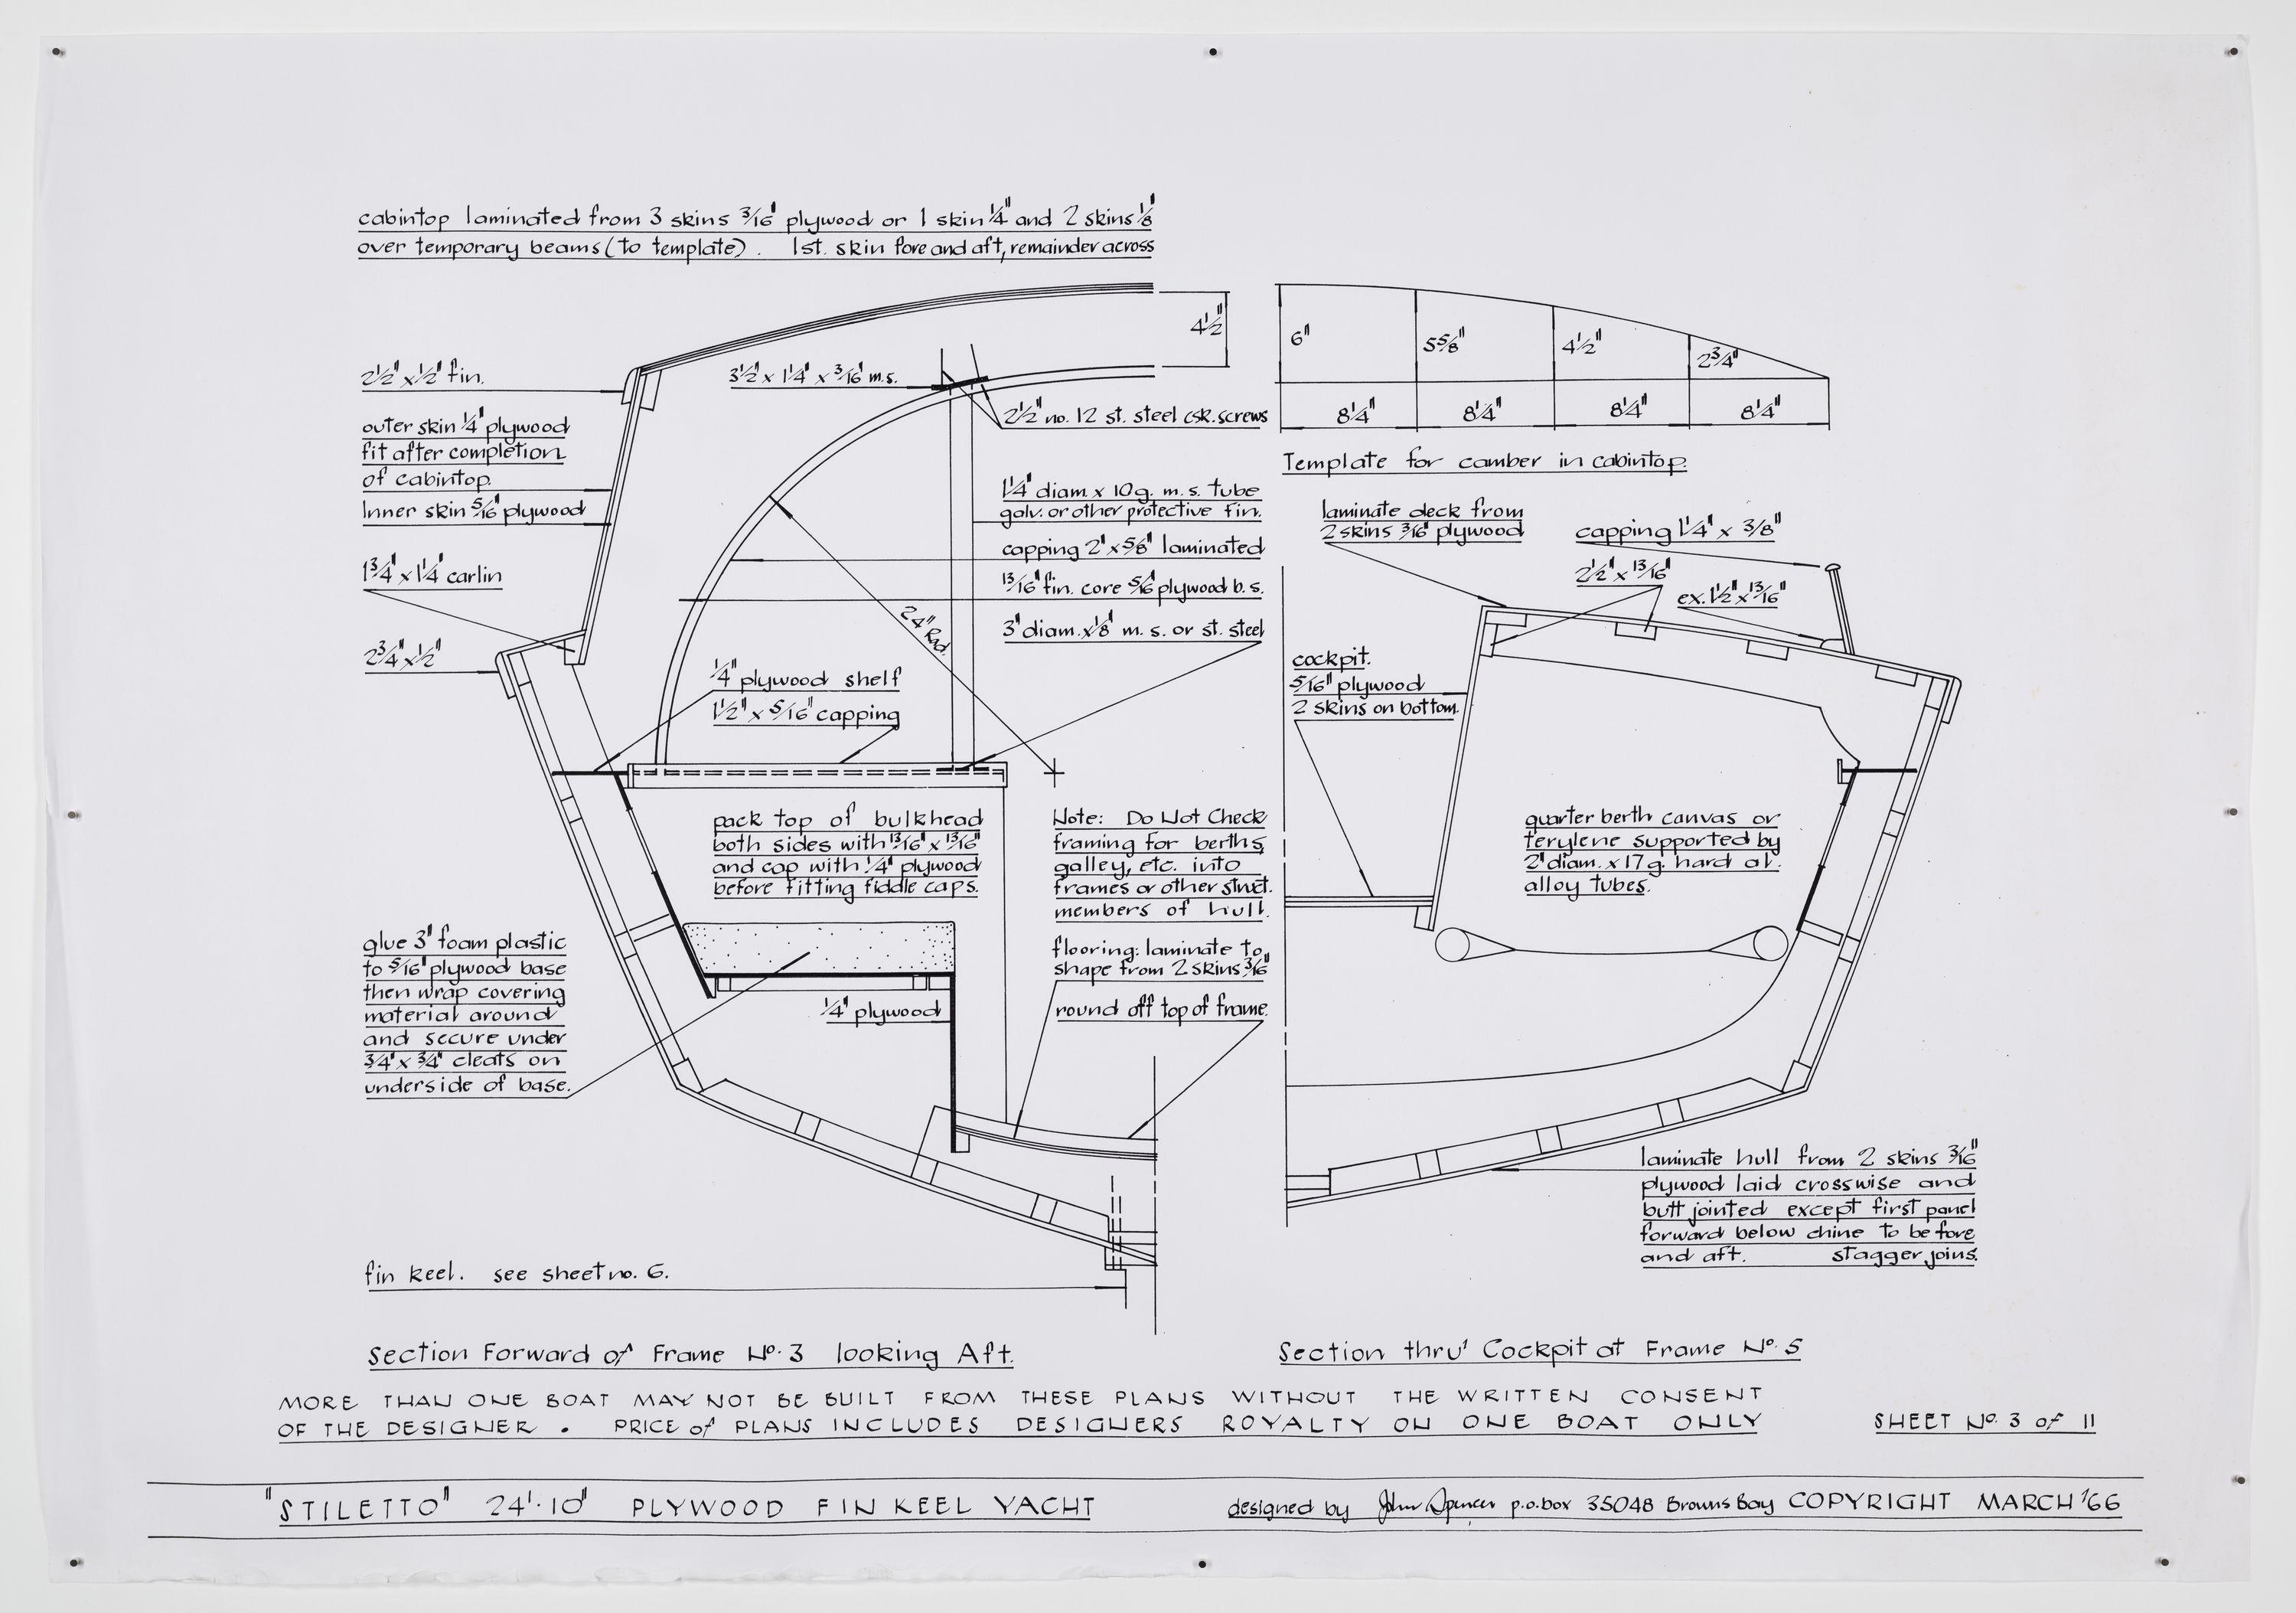 cabintop laminated from 3 skins 3/16" plywood or 1 skin 1/4" and 2 skins 1/8"
over temporary beams (to template). 1st. skin fore and aft, remainder across
2 1/2" x 1/2" fin.
outer skin 1/4" plywood
fit after completion
of cabintop.
Inner skin 5/16" plywood
1 3/4" x 1 1/4" carlin
2 3/4" x 1/2"
3 1/2" x 1 1/4" x 3/16" m.s.
4 1/2"
2 1/2" no. 12 st. steel csk. screws
1 1/4" diam. x 10g. m.s. tube
galv. or other protective fin.
capping 2" x 5/8" laminated
13/16" fin. core 5/16" plywood b.s.
3" diam. x 1/8" m.s. or st. steel
24" Rad.
1/4" plywood shelf
1 1/2" x 5/16" capping
pack top of bulkhead
both sides with 13/16" x 13/16"
and cap with 1/4" plywood
before fitting fiddle caps.
Note: Do Not Check
framing for berths,
galley, etc. into
frames or other struct.
members of hull.
flooring: laminate to
shape from 2 skins 3/16"
round off top of frame.
glue 3" foam plastic
to 5/16" plywood base
then wrap covering
material around
and secure under
3/4" x 3/4" cleats on
underside of base.
1/4" plywood
fin keel. see sheet no. 6.
Section Forward of Frame No. 3 looking Aft.
6"
5 5/8"
4 1/2"
2 3/4"
8 1/4"
8 1/4"
8 1/4"
8 1/4"
Template for camber in cabintop.
laminate deck from
2 skins 3/16" plywood
capping 1 1/4" x 3/8"
2 1/2" x 13/16"
ex. 1 1/2" x 13/16"
cockpit.
5/16" plywood
2 skins on bottom.
quarter berth canvas or
terylene supported by
2" diam. x 17g. hard al.
alloy tubes.
laminate hull from 2 skins 3/16"
plywood laid crosswise and
butt jointed except first panel
forward below chine to be fore
and aft. stagger joins.
Section thru' Cockpit at Frame No. 5
MORE THAN ONE BOAT MAY NOT BE BUILT FROM THESE PLANS WITHOUT THE WRITTEN CONSENT
OF THE DESIGNER. PRICE of PLANS INCLUDES DESIGNERS ROYALTY ON ONE BOAT ONLY
SHEET No. 3 of 11
"STILETTO" 24'·10" PLYWOOD FIN KEEL YACHT
designed by John Spencer p.o.box 35048 Browns Bay COPYRIGHT MARCH '66